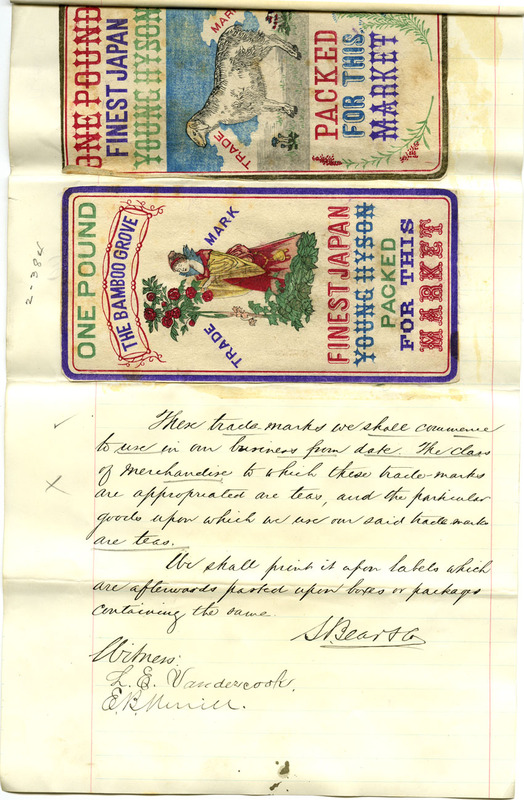 ONE POUND
FINEST JAPAN
YOUNG HYSON
TRADE MARK
PACKED
FOR THIS
MARKET
ONE POUND
THE BAMBOO GROVE
TRADE MARK
FINEST JAPAN
YOUNG HYSON
PACKED
FOR THIS
MARKET
2-384
These trade-marks we shall commence
to use in our business from date. The class
of merchandise to which these trade-marks
are appropriated are teas, and the particular
goods upon which we use our said trade marks
are teas.
We shall print it upon labels which
are afterwards pasted upon boxes or packages
containing the same.
S. Bear & Co
Witness:
L. E. Vandercook.
E. B.